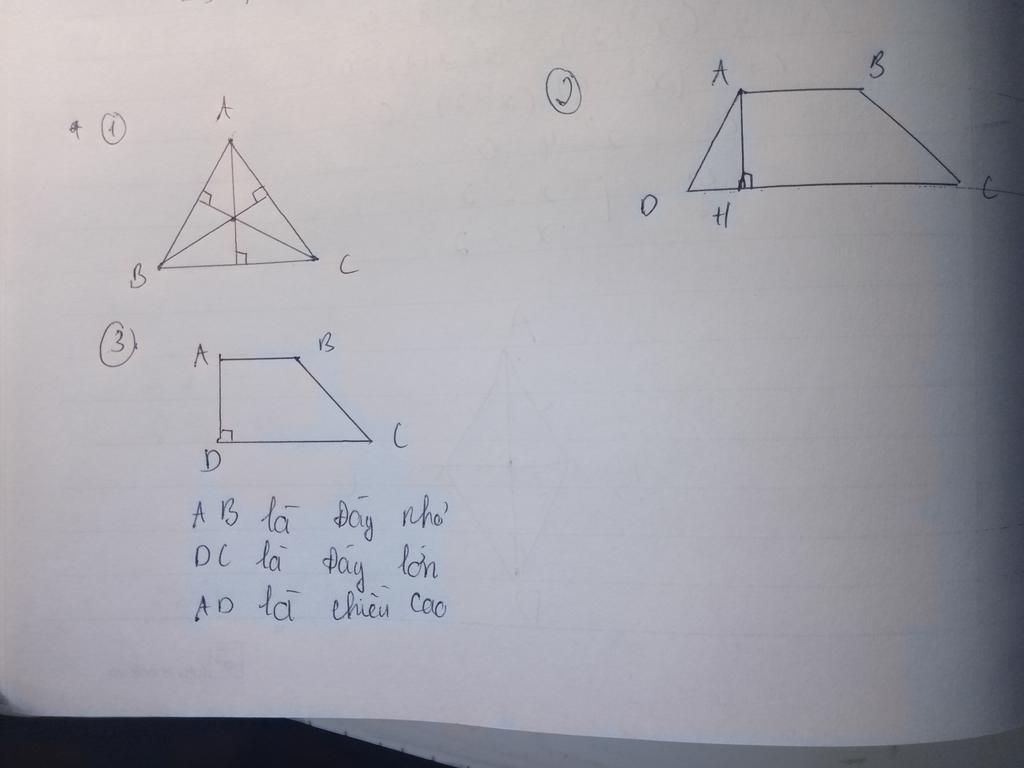 * ①
A
B
C
②
A
B
D
H
C
③.
A
B
D
C
AB là đáy nhỏ
DC là đáy lớn
AD là chiều cao